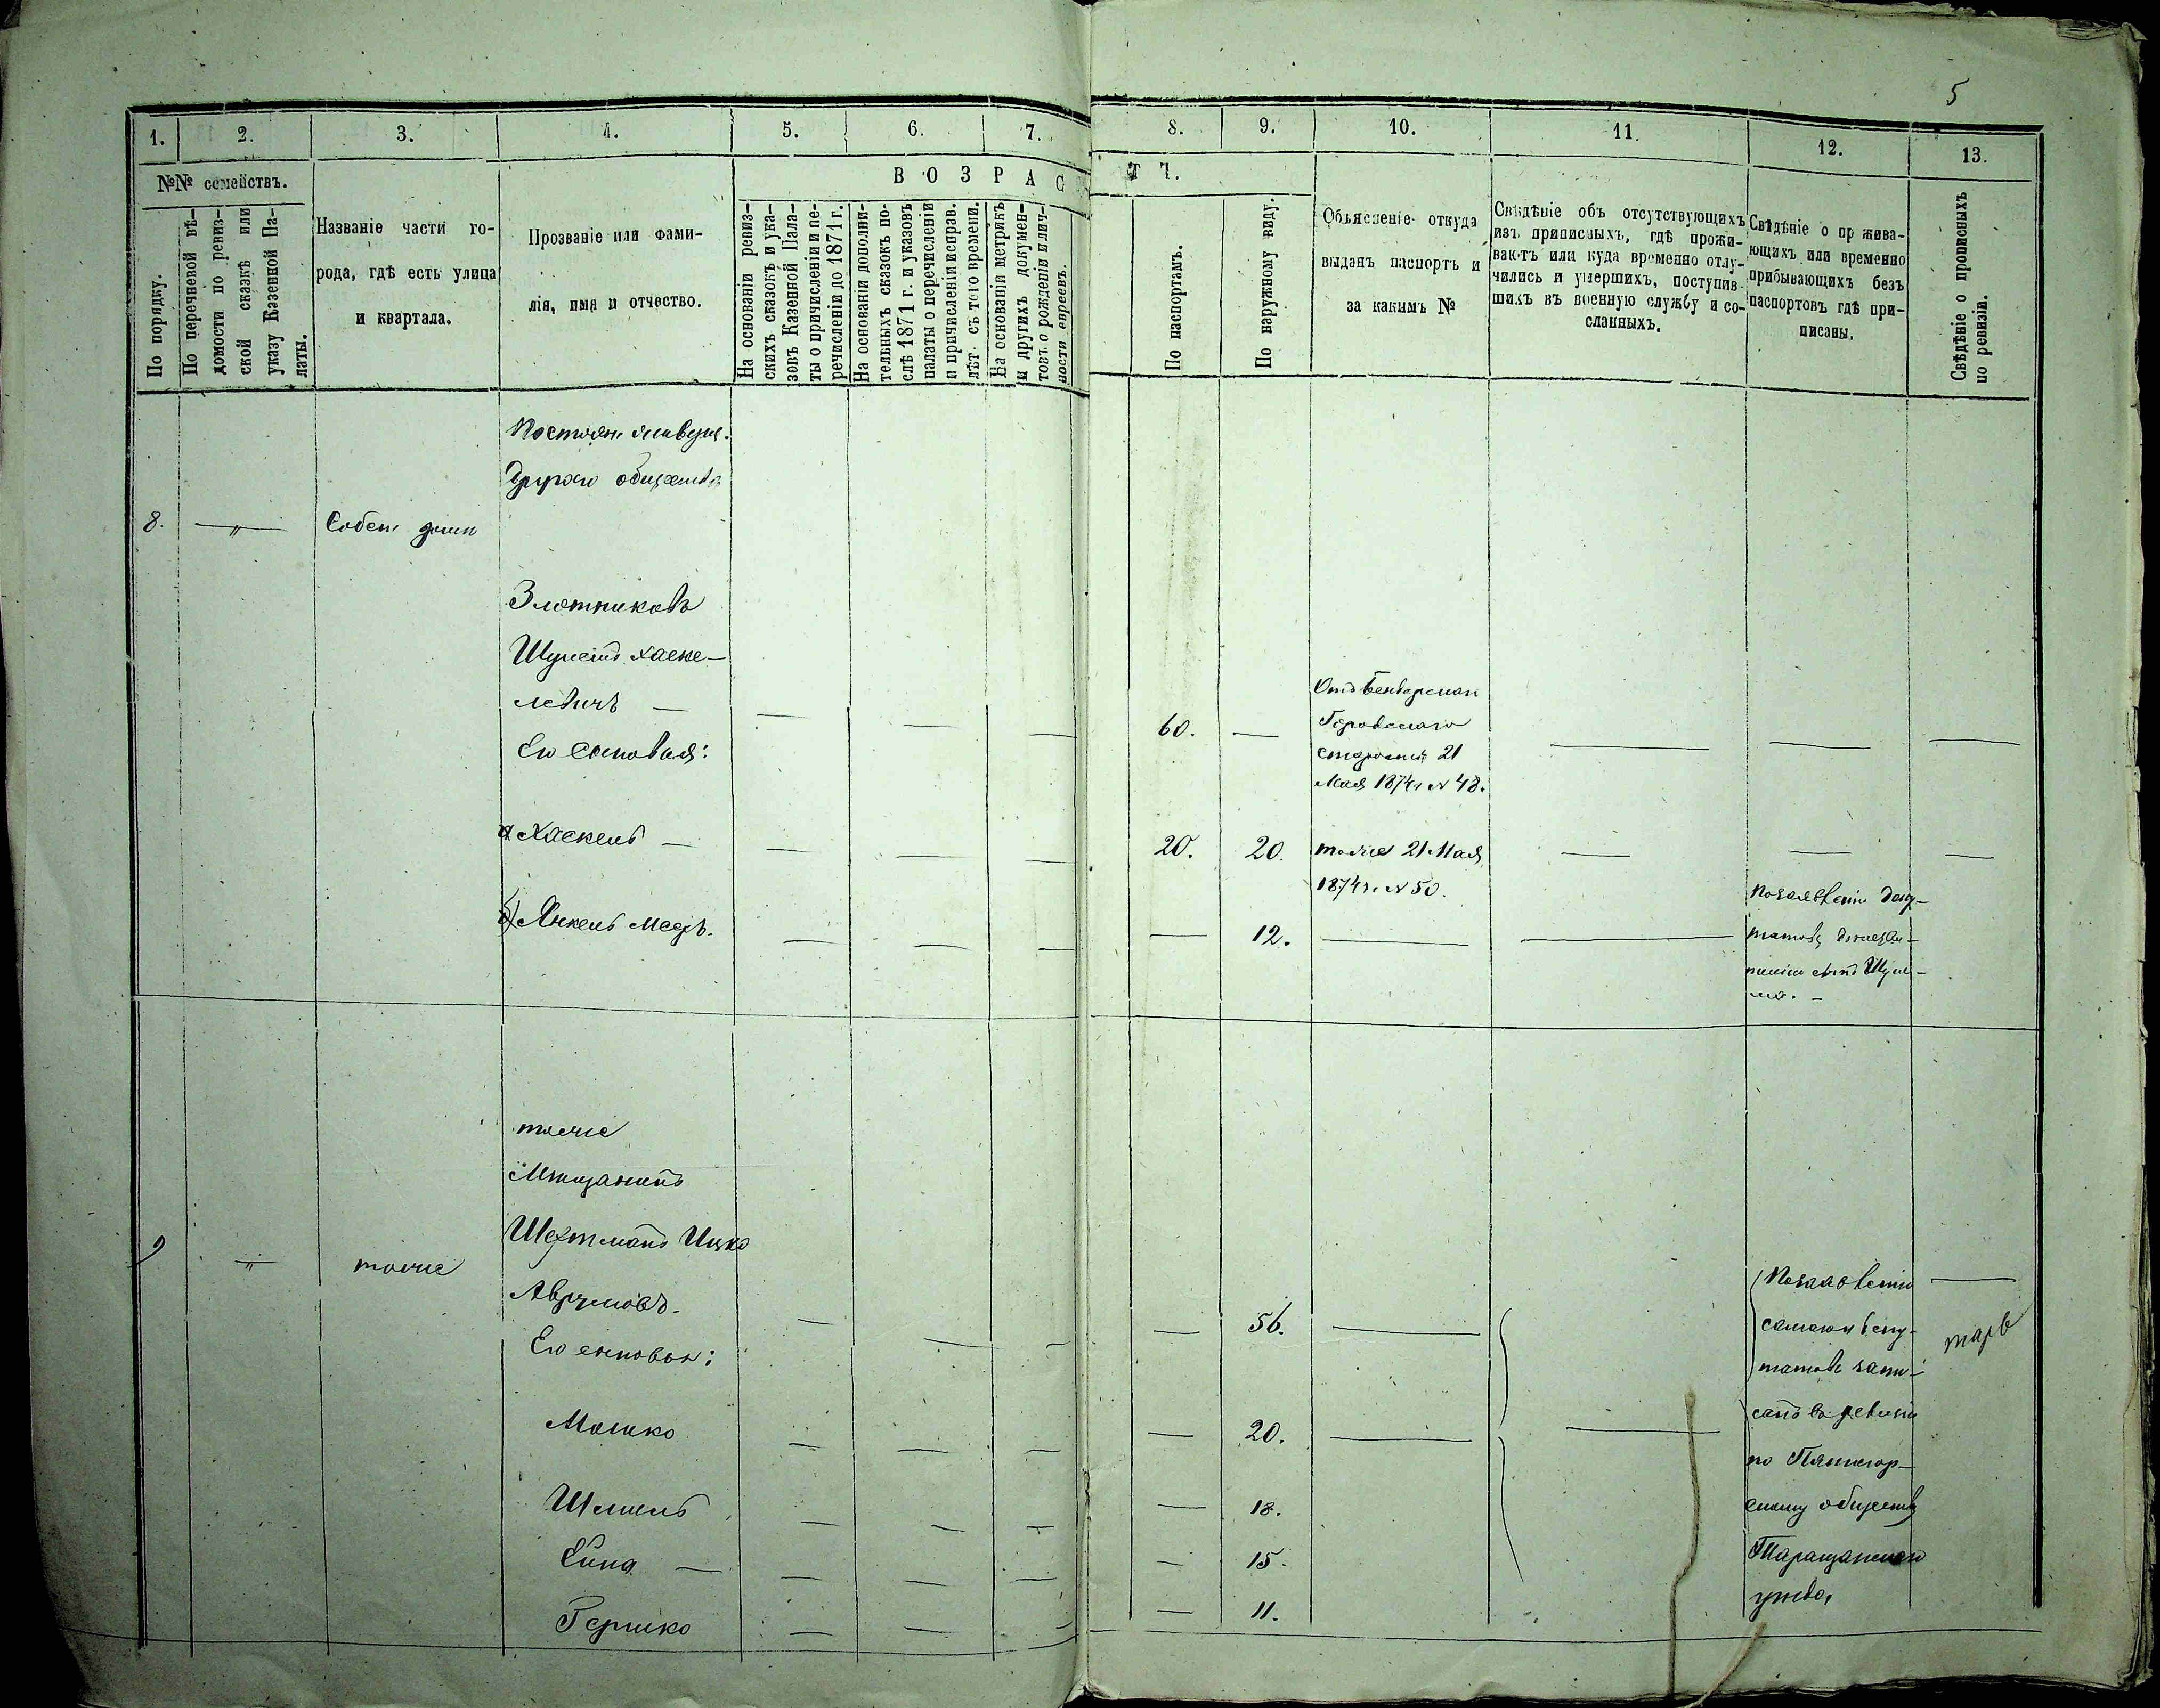 5
1. 2. 3. 4. 5. 6. 7. 8. 9. 10. 11. 12. 13.
№№ семействъ.
По порядку.
По перечневой вѣ-
домости по ревиз-
ской сказкѣ или
указу Казенной Па-
латы.
Названіе части го-
рода, гдѣ есть улица
и квартала.
Прозваніе или фами-
лія, имя и отчество.
ВОЗРАСТЪ.
На основаніи ревиз-
скихъ сказокъ и ука-
зовъ Казенной Пала-
ты о причисленіи и пе-
речисленіи до 1871 г.
На основаніи дополни-
тельныхъ сказокъ по-
слѣ 1871 г. и указовъ
палаты о перечисленіи
и причисленіи исправ.
лѣт. съ того времени.
На основаніи метрикъ
и другихъ докумен-
товъ о рожденіи и лич-
ности евреевъ.
По паспортамъ.
По наружному виду.
Объясненіе откуда
выданъ паспортъ и
за какимъ №
Свѣдѣніе объ отсутствующихъ
изъ приписныхъ, гдѣ прожи-
ваютъ или куда временно отлу-
чились и умершихъ, поступив-
шихъ въ военную службу и со-
сланныхъ.
Свѣдѣніе о прожива-
ющихъ или временно
прибывающихъ безъ
паспортовъ гдѣ при-
писаны.
Свѣдѣніе о прописныхъ
по ревизіи.
Другого общества
8. — " — Собств домъ
Злотниковъ
Шулимъ Хаске-
левичъ — 60. —
Его сыновья:
Отъ Бендерскаго
Городскаго
старосты 21
Мая 1874 г № 48.
а) Хаскель — 20. 20. тоже 21 Мая
1874 г. № 50.
б) Янкель Мееръ. 12.
По заявленію депу-
татовъ
Шули-
ма. —
тоже
Мѣщанинъ
Шехтманъ Ицко
9 — " — тоже
Аврумовъ. — 56.
Его сыновья:
Мошко — 20.
Шмиль — 18.
— 15.
Гершко — 11.
По заявленію
самаго и депу-
татовъ запи-
санъ въ ревизіи
по Пятигор-
скому обществу
Таращанскаго
уѣзда